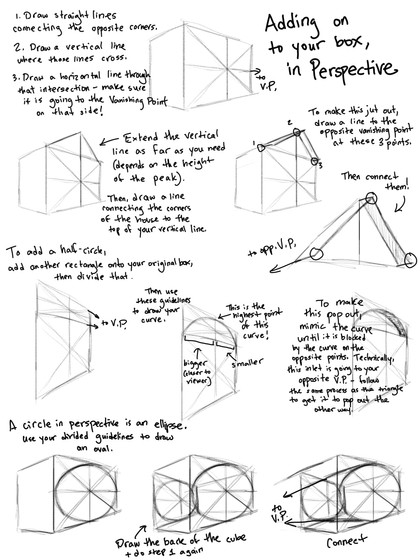 Adding on
to your box,
in Perspective
1. Draw straight lines
connecting the opposite corners.
2. Draw a vertical line
where those lines cross.
3. Draw a horizontal line through
that intersection - make sure
it is going to the Vanishing Point
on that side!
to
V.P.
Extend the vertical
line as far as you need
(depends on the height
of the peak).
Then, draw a line
connecting the corners
of the house to the
top of your vertical line.
To make this jut out,
draw a line to the
opposite vanishing point
at these 3 points.
1
2
3
Then connect
them!
to opp. V.P.
To add a half-circle,
add another rectangle onto your original box,
then divide that.
to V.P.
Then use
these guidelines
to draw your
curve.
This is the
highest point
of this
curve!
bigger
(closer to
viewer)
smaller
To make
this pop out,
mimic the curve
until it is blocked
by the curve on the
opposite points. Technically,
this inlet is going to your
opposite V.P. - follow
the same process as the triangle
to get it to pop out the
other way.
A circle in perspective is an ellipse.
Use your divided guidelines to draw
an oval.
Draw the back of the cube
+ do step 1 again
to
V.P.
Connect